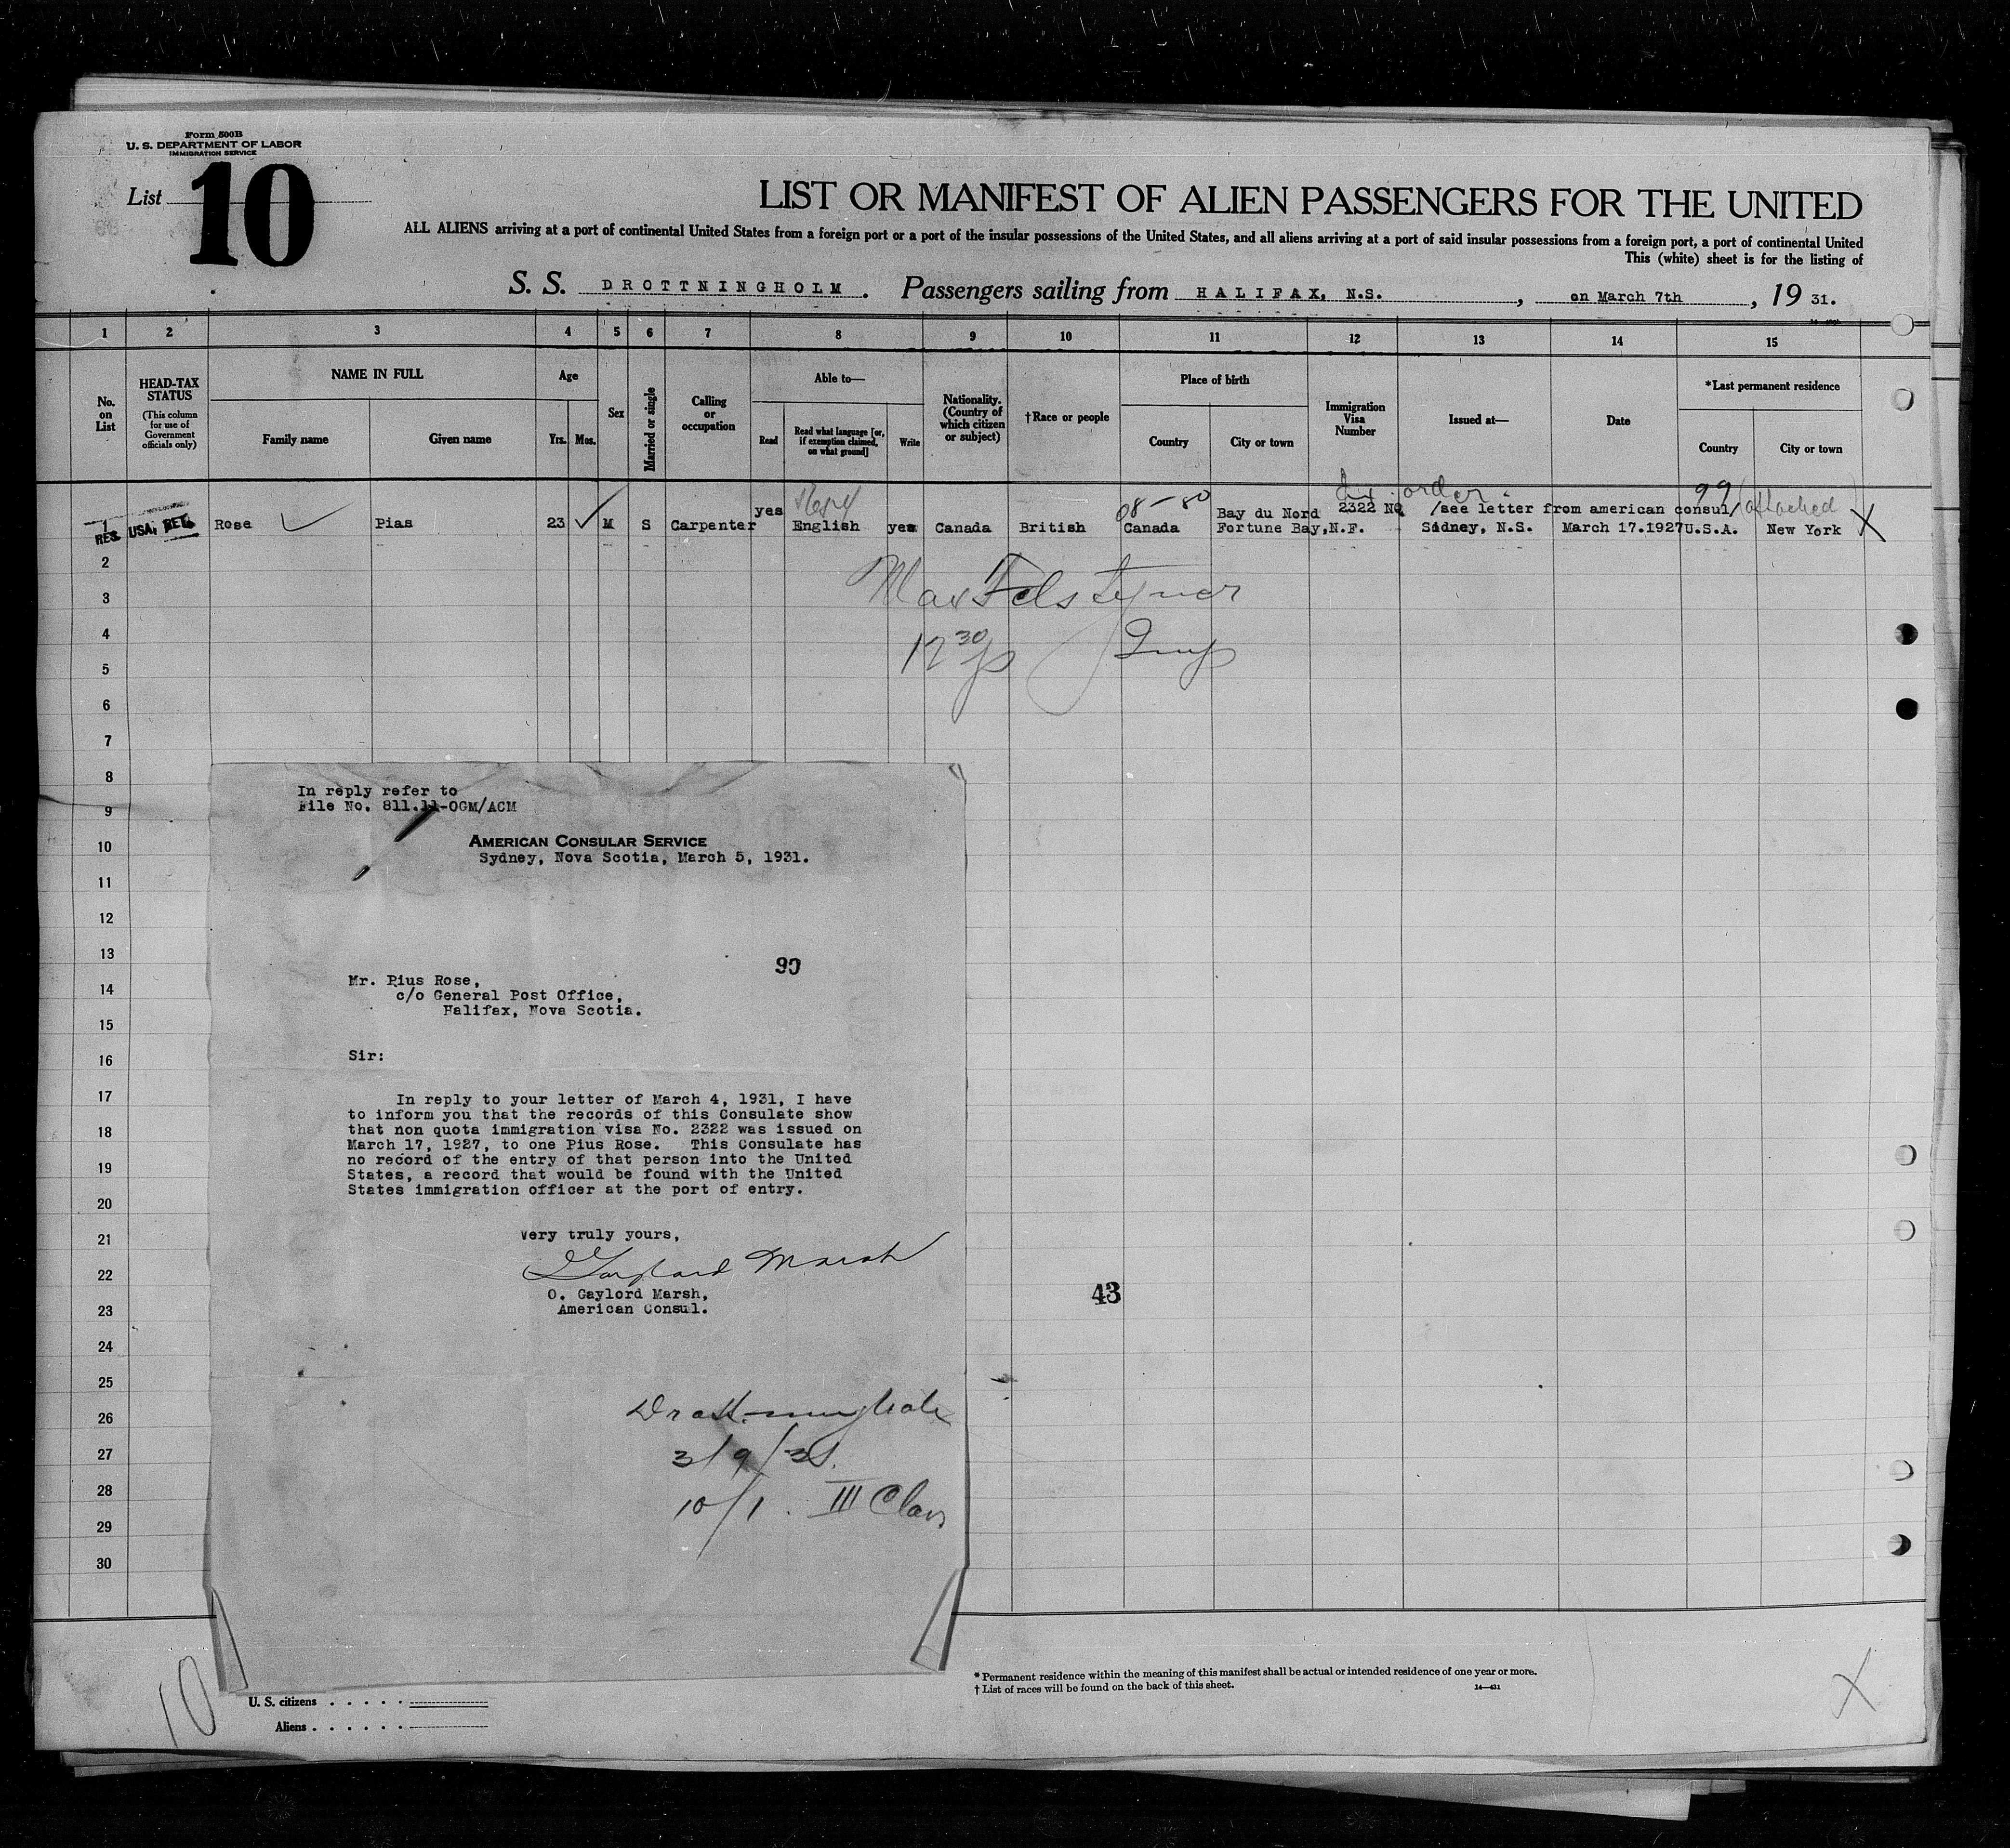 Form 500B
U. S. DEPARTMENT OF LABOR
IMMIGRATION SERVICE
List 10
LIST OR MANIFEST OF ALIEN PASSENGERS FOR THE UNITED
ALL ALIENS arriving at a port of continental United States from a foreign port or a port of the insular possessions of the United States, and all aliens arriving at a port of said insular possessions from a foreign port, a port of continental United
This (white) sheet is for the listing of
S. S. DROTTNINGHOLM. Passengers sailing from HALIFAX, N.S., on March 7th, 19 31.
1 2 3 4 5 6 7 8 9 10 11 12 13 14 15
No. on List
HEAD-TAX STATUS
(This column for use of Government officials only)
NAME IN FULL
Family name
Given name
Age
Yrs.
Mos.
Sex
Married or single
Calling or occupation
Able to—
Read
Read what language [or, if exemption claimed, on what ground]
Write
Nationality. (Country of which citizen or subject)
†Race or people
Place of birth
Country
City or town
Immigration Visa Number
Issued at—
Date
*Last permanent residence
Country
City or town
order
08-80
99
attached
yes
Bay du Nord
2322 NQ /see letter from american consul/
1 Rose Pias 23 M S Carpenter English yes Canada British Canada Fortune Bay,N.F. Sidney, N.S. March 17.1927 U.S.A. New York X
RES. USA; RET.
2
3
4
12 30
5
6
7
8
9
10
11
12
13
14
15
16
17
18
19
20
21
22
23
24
25
26
27
28
29
30
In reply refer to
File No. 811.11-OGM/ACM
AMERICAN CONSULAR SERVICE
Sydney, Nova Scotia, March 5, 1931.
90
Mr. Pius Rose,
c/o General Post Office,
Halifax, Nova Scotia.
Sir:
In reply to your letter of March 4, 1931, I have
to inform you that the records of this Consulate show
that non quota immigration visa No. 2322 was issued on
March 17, 1927, to one Pius Rose. This Consulate has
no record of the entry of that person into the United
States, a record that would be found with the United
States immigration officer at the port of entry.
Very truly yours,
Gaylord Marsh
O. Gaylord Marsh,
American Consul.
43
Drottningholm
3/9/31.
10/1. III Class
10
X
* Permanent residence within the meaning of this manifest shall be actual or intended residence of one year or more.
† List of races will be found on the back of this sheet.
U. S. citizens
Aliens